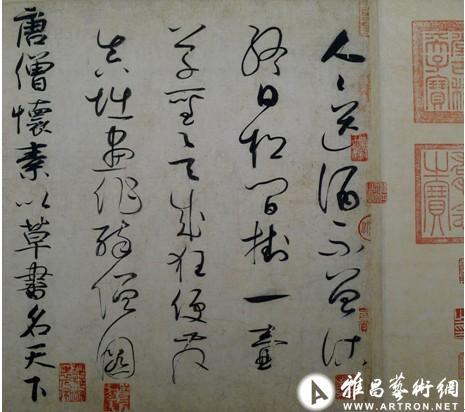 人人送酒不曾沽
終日松間掛一壺
草聖欲成狂便發
真堪畫作醉僧圖
唐僧懷素以草書名天下
雅昌藝術網
WWW.ARTRON.NET